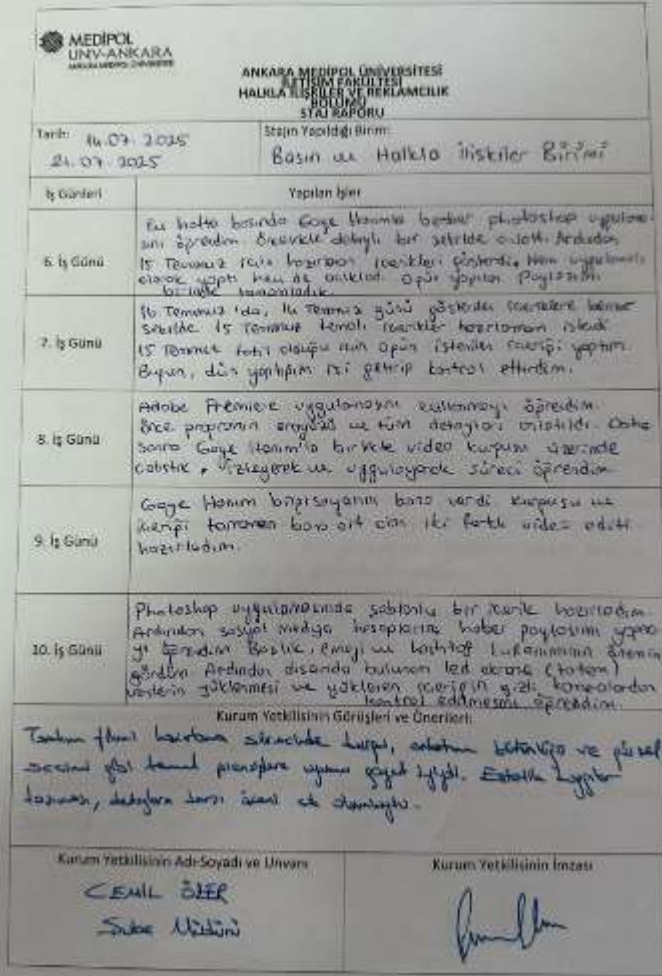 MEDİPOL
UNV-ANKARA
ANKARA MEDİPOL ÜNİVERSİTESİ
ANKARA MEDİPOL ÜNİVERSİTESİ
İLETİŞİM FAKÜLTESİ
HALKLA İLİŞKİLER VE REKLAMCILIK
BÖLÜMÜ
STAJ RAPORU
Tarih: 14.07.2025
21.07.2025
Stajın Yapıldığı Birim:
Basın ve Halkla İlişkiler Birimi
İş Günleri
Yapılan İşler
6. İş Günü
Bu hafta başında Gaye Hanımla beraber photoshop uygulama-
sını öğrendim. Öncelikle detaylı bir şekilde anlattı. Ardından
15 Temmuz için hazırlanan içerikleri gösterdi. Hem uygulamalı
olarak yaptı hem de açıkladı. yapılan Paylaşımı
birlikte tamamladık.
7. İş Günü
16 Temmuz'da, 14 Temmuz günü gösterilen içeriklere benzer
şekilde 15 Temmuz temalı içerikler hazırlamamı istedi.
15 Temmuz tatil olduğu için istenilen içeriği yaptım.
Bugün, dün yaptığım işi getirip kontrol ettirdim.
8. İş Günü
Adobe Premiere uygulamasını kullanmayı öğrendim.
Önce programın arayüzü ve tüm detayları anlatıldı. Daha
sonra Gaye Hanım'la birlikte video kurgusu üzerinde
çalıştık, izleyerek ve uygulayarak süreci öğrendim.
9. İş Günü
Gaye Hanım bilgisayarını bana verdi kurgusu ve
içeriği tamamen bana ait olan iki farklı video editi
hazırladım.
10. İş Günü
Photoshop uygulamasında şablonlu bir içerik hazırladım.
Ardından sosyal medya hesaplarına haber paylaşımı yapma-
yı öğrendim Başlık, emoji ve hashtag kullanımının önemini
gördüm Ardından dışarıda bulunan led ekrana (totem)
yüklenmesi ve yüklenen içeriğin gizli kameralardan
kontrol edilmesini öğrendim.
Kurum Yetkilisinin Görüşleri ve Önerileri:
Tanıtım filmi hazırlama sürecinde kurgu, anlatım bütünlüğü ve görsel
seçimi gibi temel prensiplere uyumu gayet iyiydi. Estetik kaygılar
taşıması, detaylara karşı özeni de olumluydu.
Kurum Yetkilisinin Adı-Soyadı ve Unvanı
Kurum Yetkilisinin İmzası
CEMİL ÖZER
Şube Müdürü